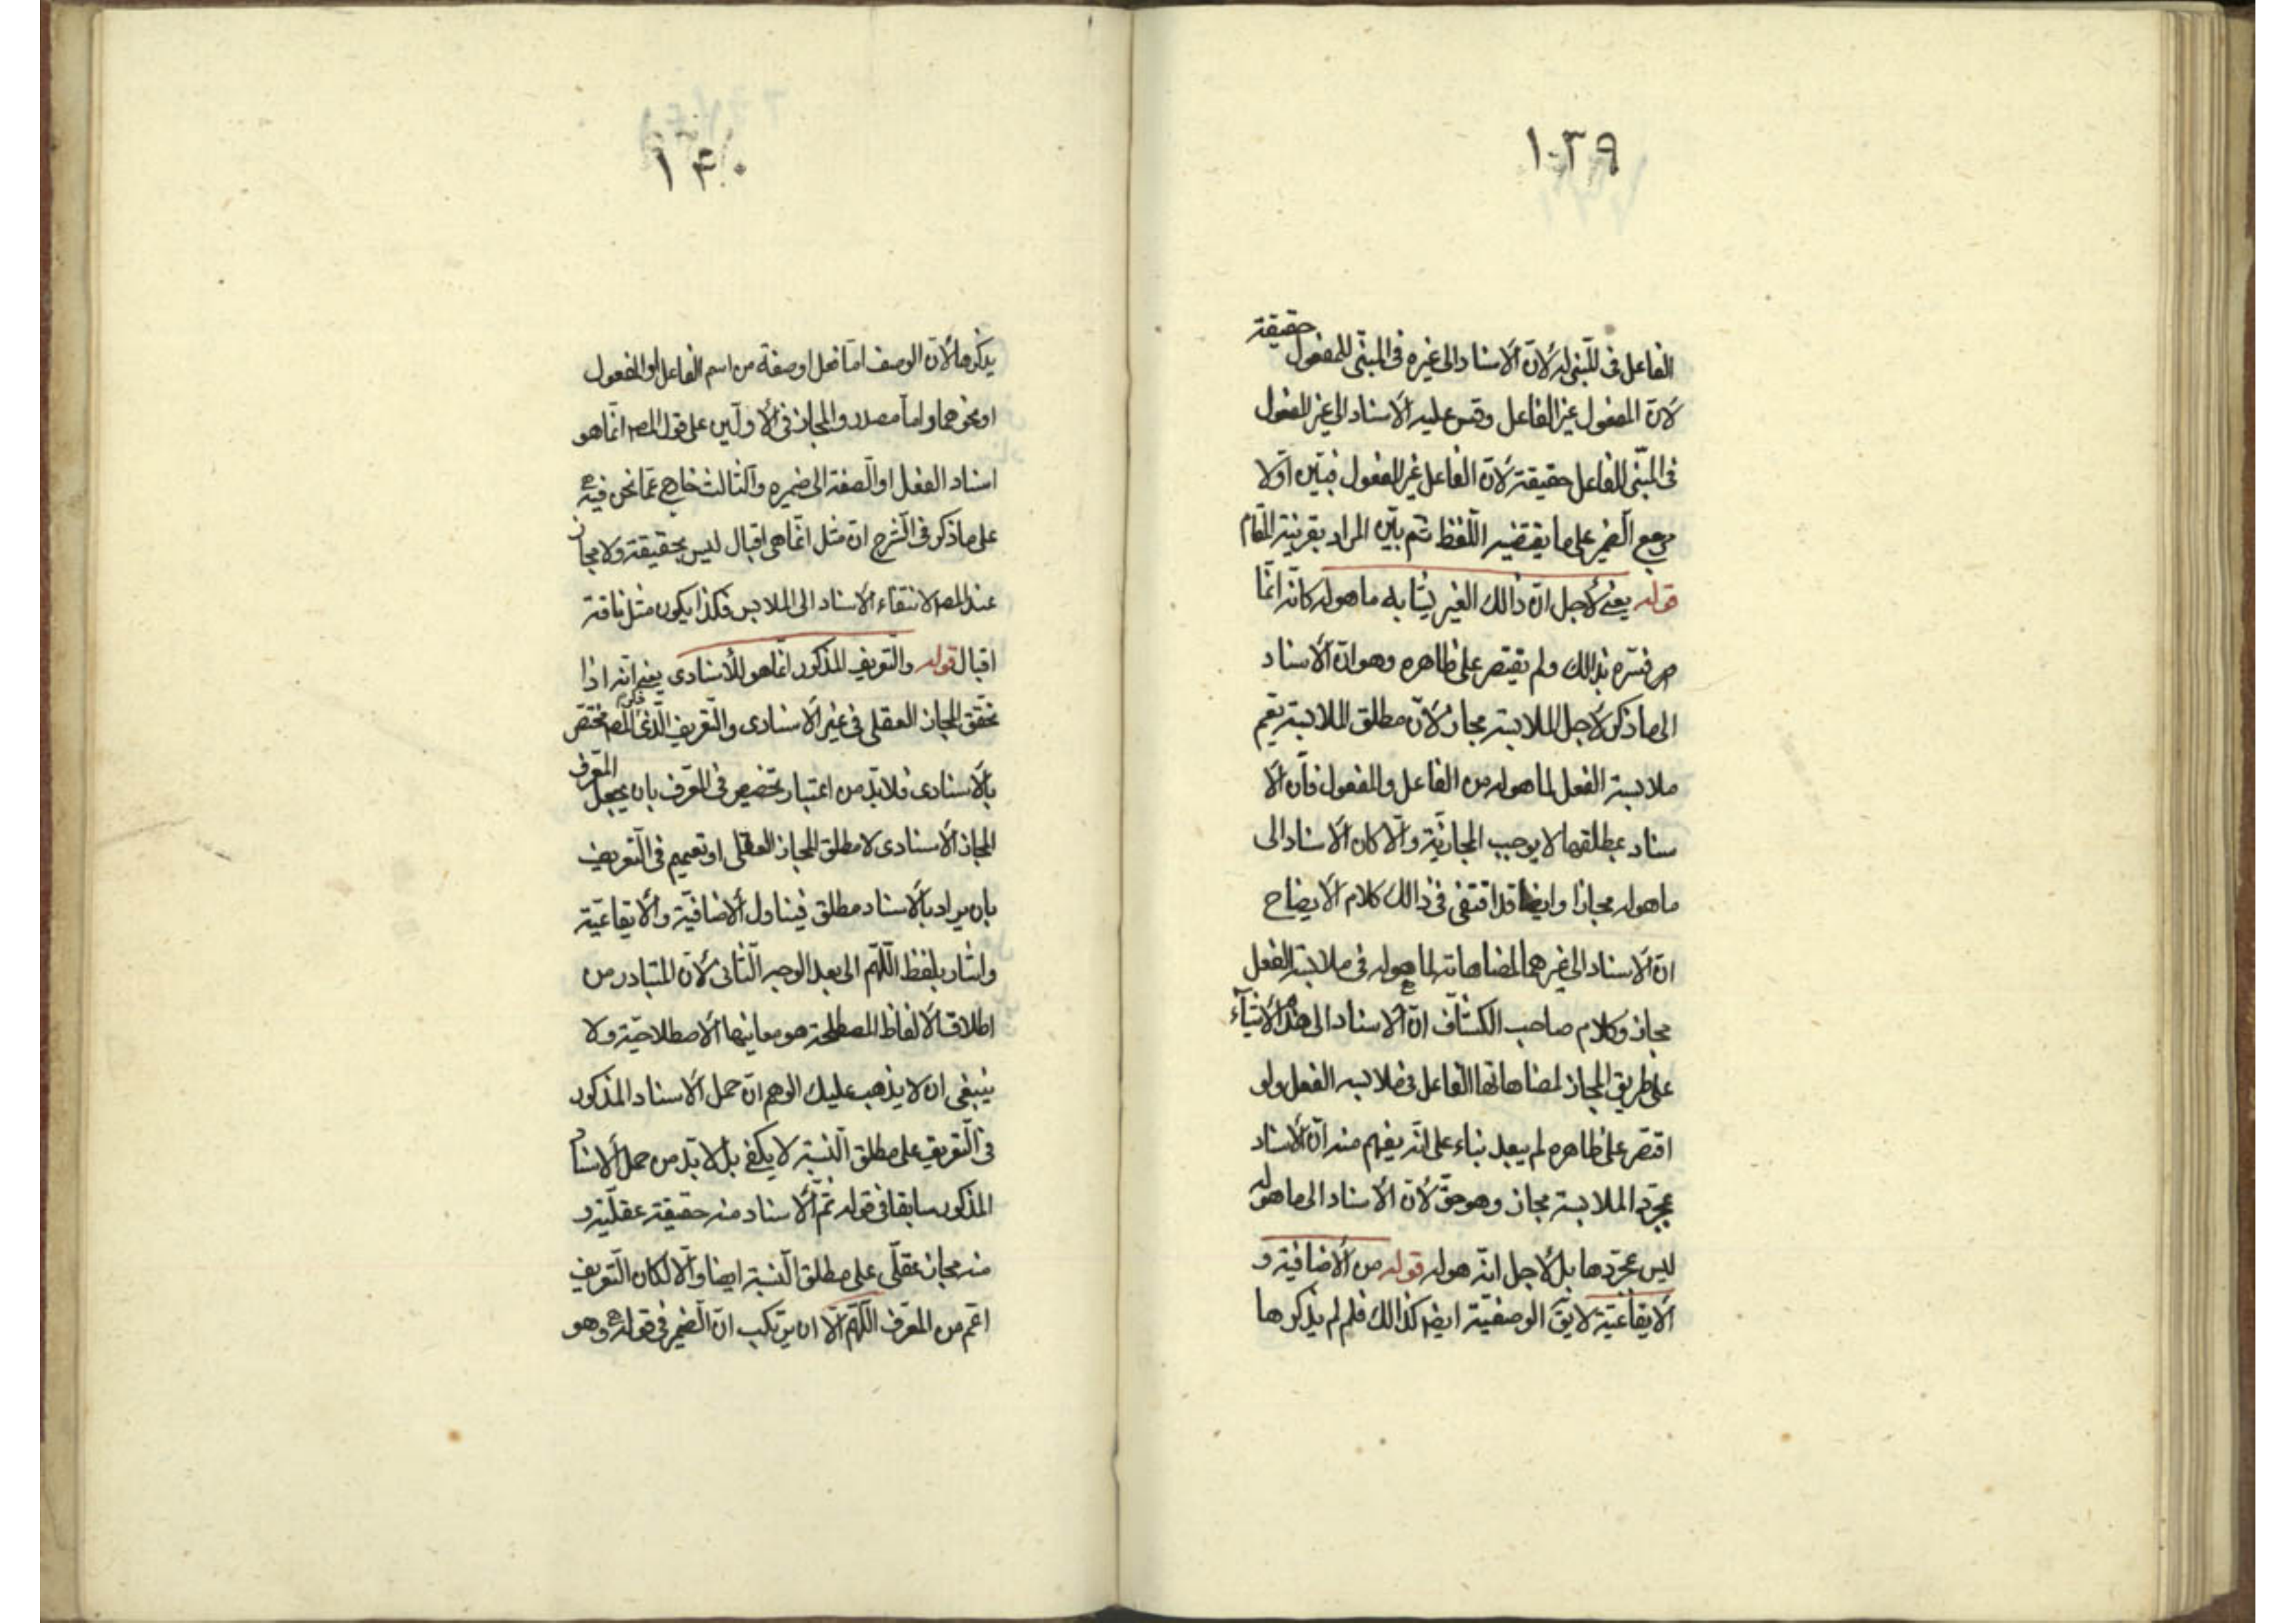 ١٣٩
الفاعل فى المبنى له لانّ الاسناد الى غيره فى المبنى للمفعول حقيقة
لانّ المفعول غير الفاعل وقس عليه الاسناد الى غير المفعول
فى المبنى للفاعل حقيقة لانّ الفاعل غير المفعول فبيّن اوّلا
مرجع الضمير على ما يقتضيه اللّفظ ثم بيّن المراد بقرينة المقام
قوله يعنى لاجل انّ ذالك الغير يشابه ما هو له كانّه انّما
فسّره بذالك ولم يقتصر على ظاهره وهو انّ الاسناد
الى ما ذكر لاجل الملابسة مجاز لانّ مطلق الملابسة يعم
ملابسة الفعل لما هو له من الفاعل والمفعول فانّ الا
سناد بمطلقها لا يوجب المجازيّة والّا كان الاسناد الى
ما هو له مجازا وايضا قد اقتفى فى ذالك كلام الايضاح
انّ الاسناد الى غيرهما لمضاهاته لما هو له فى ملابسة الفعل
مجاز وكلام صاحب الكشّاف انّ الاسناد الى هذه الاشيآء
على طريق المجاز لمضاهاتها الفاعل فى ملابسه الفعل ولو
اقتصر على ظاهره لم يبعد بناء على انّه يفهم منه انّ الاسناد
بمجرّد الملابسة مجاز وهو حقّ لانّ الاسناد الى ما هو له
ليس بمجرّدها بل لاجل انّه هو له قوله من الاضافية و
الايقاعيّة لا يق الوصفيّة ايضا كذالك فلم لم يذكرها
١۴٠
يذكرها لانّ الوصف امّا فعل او صفة من اسم الفاعل او المفعول
او نحوهما واما مصدر والمجاز فى الاولين على قول المصـ انّما هو
اسناد الفعل او الصفة الى ضميره والثالث خارج عمّا نحن فيه
على ما ذكر فى الشرح انّ مثل انّما هى اقبال ليس بحقيقة ولا مجاز
عند المصـ لانتفاء الاسناد الى الملابس فكذا يكون مثل ناقة
اقبال قوله والتّعريف المذكور انّما هو للاسنادى يعنى انّه اذا
تحقق المجاز العقلى فى غير الاسنادى والتّعريف الّذى ذكره المصـ مختصّ
بالاسنادى فلا بدّ من اعتبار تخصيص فى المعرّف بان يجعل المعرف
المجاز الاسنادى لا مطلق المجاز العقلى او تعميم فى التّعريف
بان يراد بالاسناد مطلق فيتناول الاضافيّة والايقاعيّة
واشار بلفظ اللّهم الى بعد الوجه الثّانى لانّ المتبادر من
اطلاق الالفاظ المصطلحة هو معانيها الاصطلاحيّة ولا
ينبغى ان لا يذهب عليك الوهم انّ حمل الاسناد المذكور
فى التّعريف على مطلق النّسبة لا يكفى بل لا بدّ من حمل الاسناد
المذكور سابقا فى قوله ثمّ الاسناد منه حقيقة عقليّة و
منه مجاز عقلّى على مطلق النّسبة ايضا والّا لكان التّعريف
اعمّ من المعرّف اللّهمّ الّا ان يرتكب انّ الضّمير فى قوله وهو